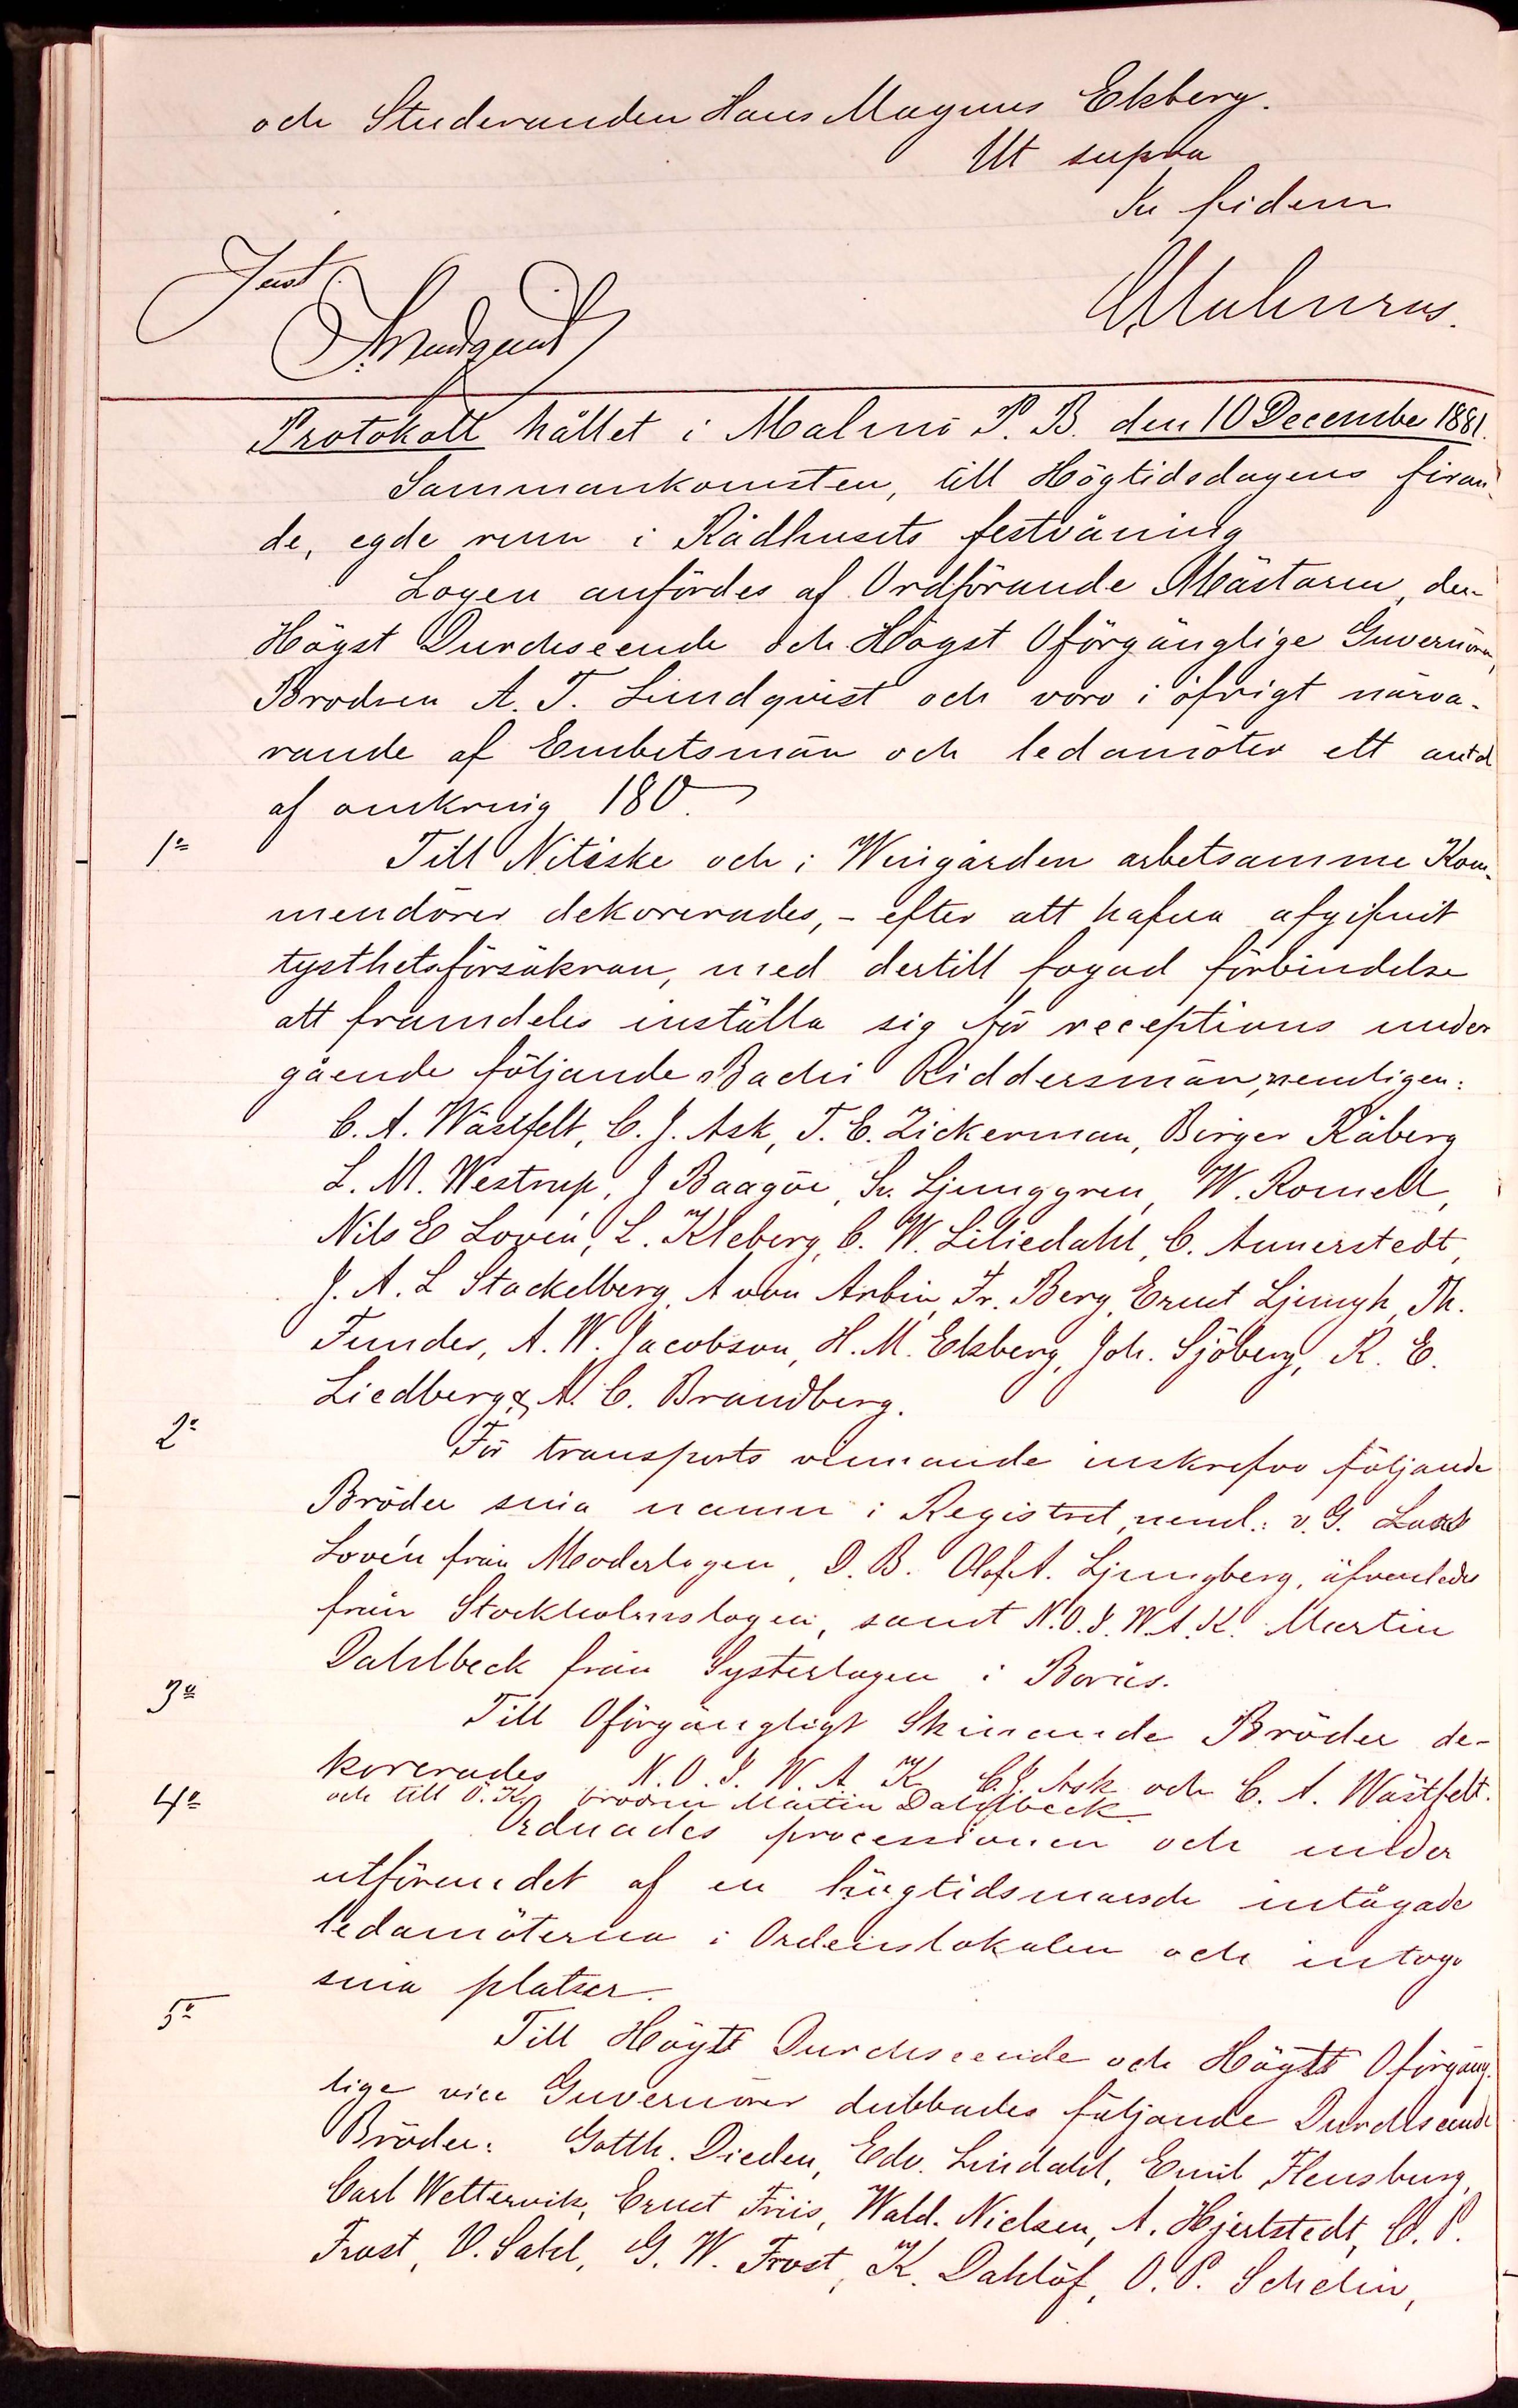 och Studeranden Hans Magnus Ekberg.
Ut supra
In fidem
Just.
Protokoll hållet i Malmö P. B. den 10 December 1881.
Sammankomsten, till Högtidsdagens firan-
de, egde rum i Rådhusets festvåning
Logen anfördes af Ordförande Mästaren, den
Högst Durchseende och Högst Oförgänglige Guvernören,
Brodren A. T. Lindqvist och voro i öfrigt närva-
rande af Embetsmän och ledamöter ett antal
af omkring 180.
1o
Till Nitiske och i Wingården arbetsamme Kom-
mendörer dekorerades, - efter att hafva afgifvit
tysthetsförsäkran, med dertill fogad förbindelse
att framdeles inställa sig för receptions under
gående följande Bachi Riddersmän, nemligen:
C. A. Wästfelt, C. J. Ask, T. E. Zickerman, Birger Råberg
L. M. Westrup, J Baagöe, Sv. Ljunggren, W. Romell,
Nils E Lovén, L. Kleberg, C. W. Liliedahl, C. Annerstedt,
J. A. L Stackelberg, A von Arbin, Fr. Berg, Ernst Ljungh, Th.
Funder, A. W. Jacobson, H. M. Ekberg, Joh. Sjöberg, R. E.
Liedberg & A. C. Brandberg.
2o
För transports vinnande inskrefvo följande
Bröder sina namn i Registret, neml.: v. G.
Lovén från Moderlogen, D. B. Olof A. Ljungberg, äfvenledes
från Stockholmslogen, samt N. O. I. W. A. K. Martin
Dahlbeck från Systerlogen i Borås.
3o
Till Oförgängligt Skinande Bröder de-
korerades N. O. I. W. A. K C. J. Ask och C. A. Wästfelt.
och till O. K. brodren Martin Dahlbeck.
4o
Ordnades processionen och under
utförandet af en högtidsmarsch intågade
ledamöterna i Ordenslokalen och intogo
sina platser.
5o
Till Högst Durchseende och Högst Oförgäng-
lige vice Guvernörer dubbades följande Durchseende
Bröder: Gotth. Dieden, Edv. Lindahl, Emil Flensburg,
Carl Wettervik, Ernst Friis, Wald. Nielsen, A. Hjertstedt, C. P.
Frost, O. Sahl, G. W. Frost, K. Dahlöf, O. P. Schelin,